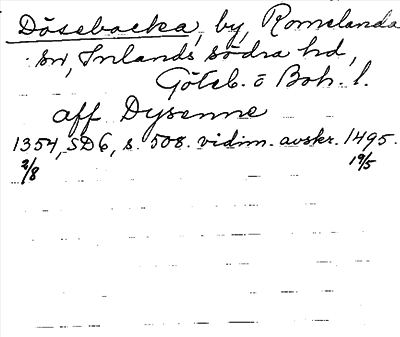 Dösebacka, by, Romelanda
sn, Inlands södra hd,
Göteb. o Boh. l.
aff Dysenne
1354, SD6, s. 508. vidim. avskr. 1495.
2/8 19/5